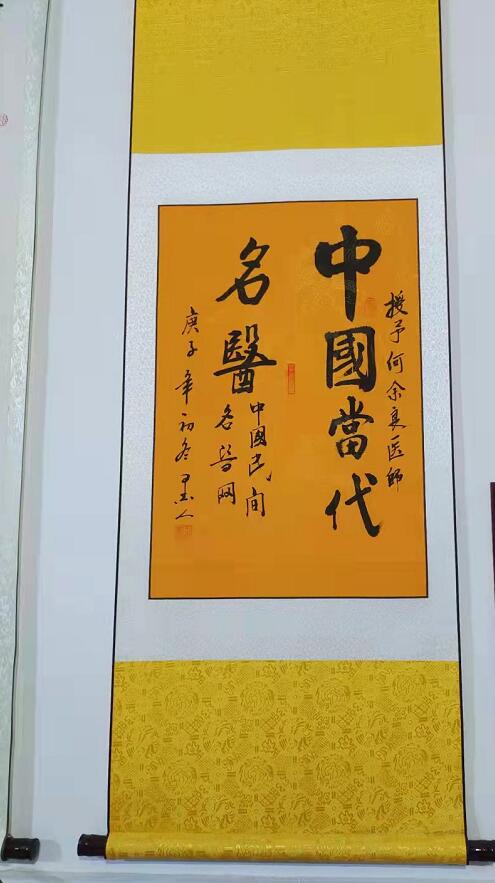 授予何余良医師
中國當代
名醫
中國民间
名醫网
庚子年初冬墨人